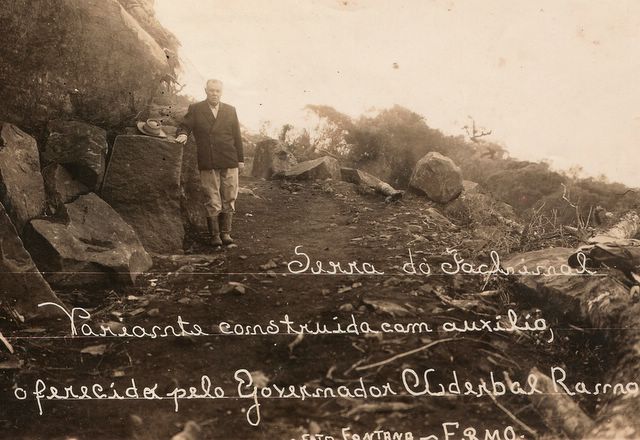 Serra do Fachinal
Variante construida com auxilio,
oferecida pelo Governador Aderbal Ramo
FOTO FONTANA — F.RMO.